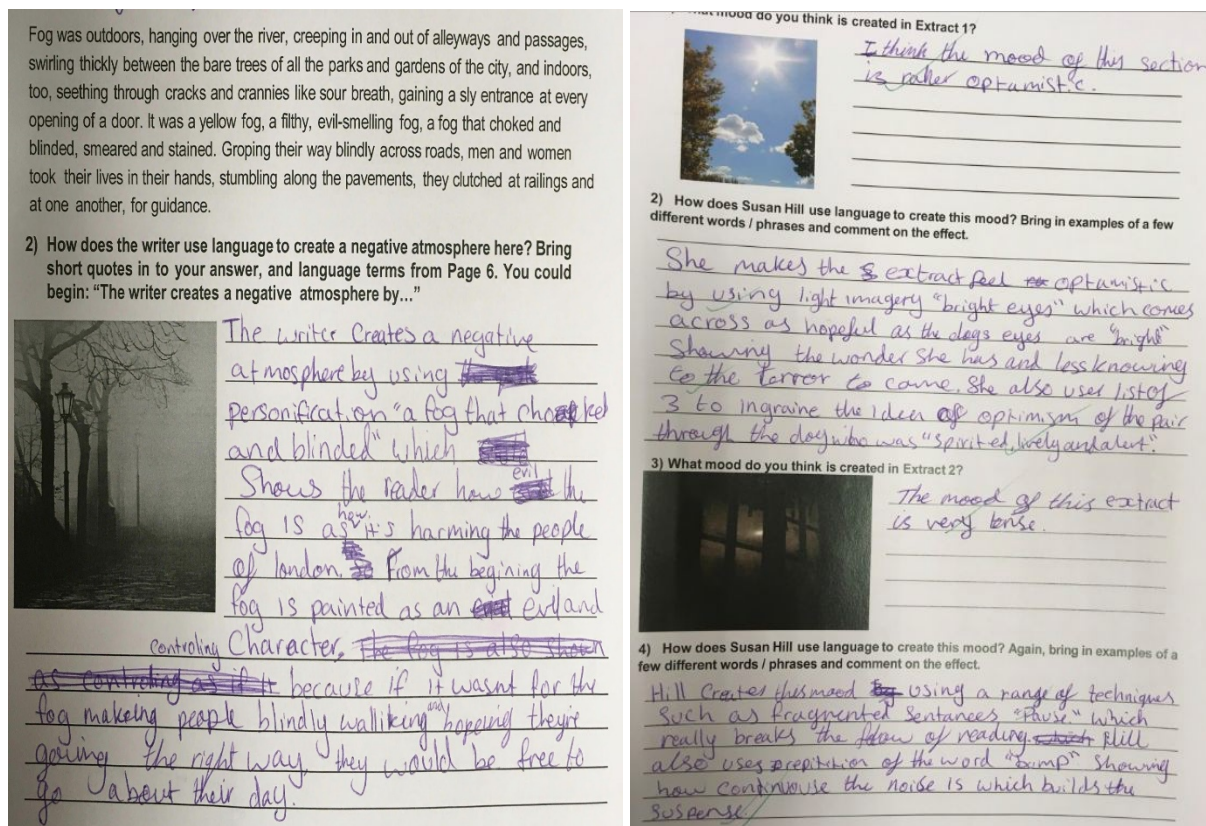 Fog was outdoors, hanging over the river, creeping in and out of alleyways and passages,
swirling thickly between the bare trees of all the parks and gardens of the city, and indoors,
too, seething through cracks and crannies like sour breath, gaining a sly entrance at every
opening of a door. It was a yellow fog, a filthy, evil-smelling fog, a fog that choked and
blinded, smeared and stained. Groping their way blindly across roads, men and women
took their lives in their hands, stumbling along the pavements, they clutched at railings and
at one another, for guidance.
2) How does the writer use language to create a negative atmosphere here? Bring
short quotes in to your answer, and language terms from Page 6. You could
begin: “The writer creates a negative atmosphere by...”
The writer creates a negative
atmosphere by using
personification "a fog that choked
and blinded" which
Shows the reader how evil the
fog is as how it's harming the people
of london. From the begining the
fog is painted as an evil and
controling Character, The fog is also shown
as controling as if it because if it wasnt for the
fog makeing people blindly walliking and hopeing theyre
goeing the right way, they would be free to
go about their day.
mood do you think is created in Extract 1?
I think the mood of this section
is rather optamistic.
2) How does Susan Hill use language to create this mood? Bring in examples of a few
different words / phrases and comment on the effect.
She makes the extract feel optamistic
by using light imagery "bright eyes" which comes
across as hopeful as the dogs eyes are "bright"
Showing the wonder she has and less knowing
to the terror to come. She also uses list of
3 to ingraine the idea of optimism of the pair
through the dog who was "spirited, lively and alert".
3) What mood do you think is created in Extract 2?
The mood of this extract
is very tense.
4) How does Susan Hill use language to create this mood? Again, bring in examples of a
few different words / phrases and comment on the effect.
Hill Creates this mood using a range of techniques
Such as fragmented Sentances "Pause" which
really breaks the flow of reading. which Hill
also uses repitition of the word "bump" Showing
how continuouse the noise is which builds the
suspense.